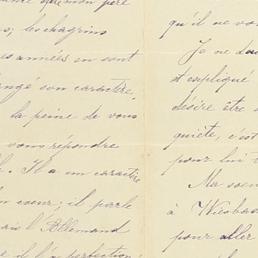 que mon père
s; les chagrins
es années en sont
ngé son caractère,
la peine de vous
vous répondre
. Il a un caractère
n coeur; il parle
ais l'Allemand
e il l'a perfection
qu'il ne vou
Je ne dou
et expliqué
désire être
quiète, c'est
pour lui t
Ma soeu
à Wiesba
pour aller